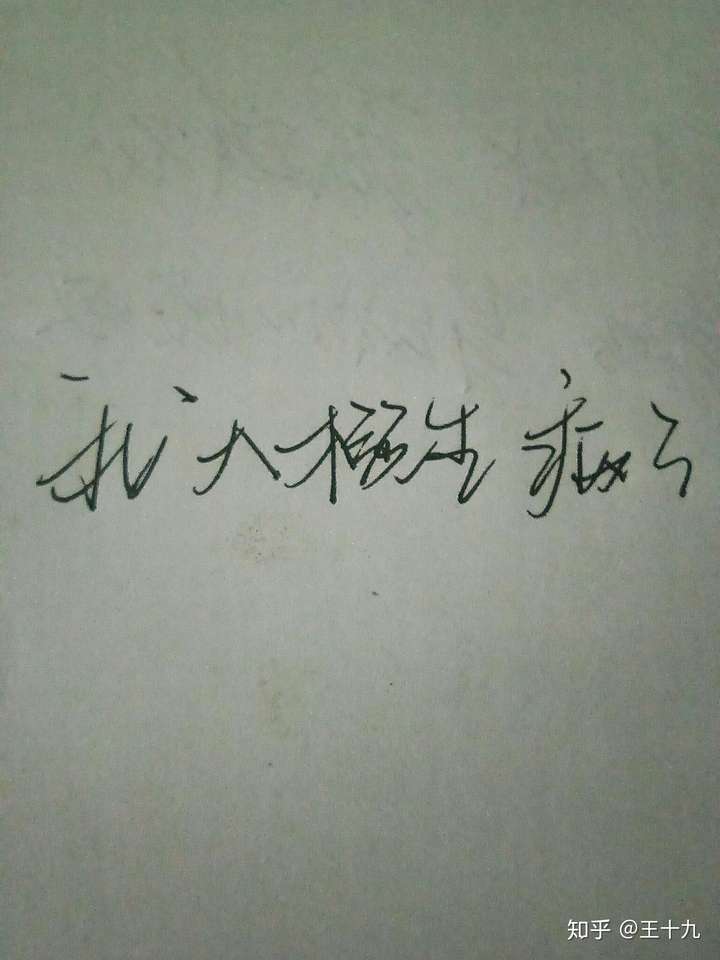 我大概生病了
知乎 @王十九